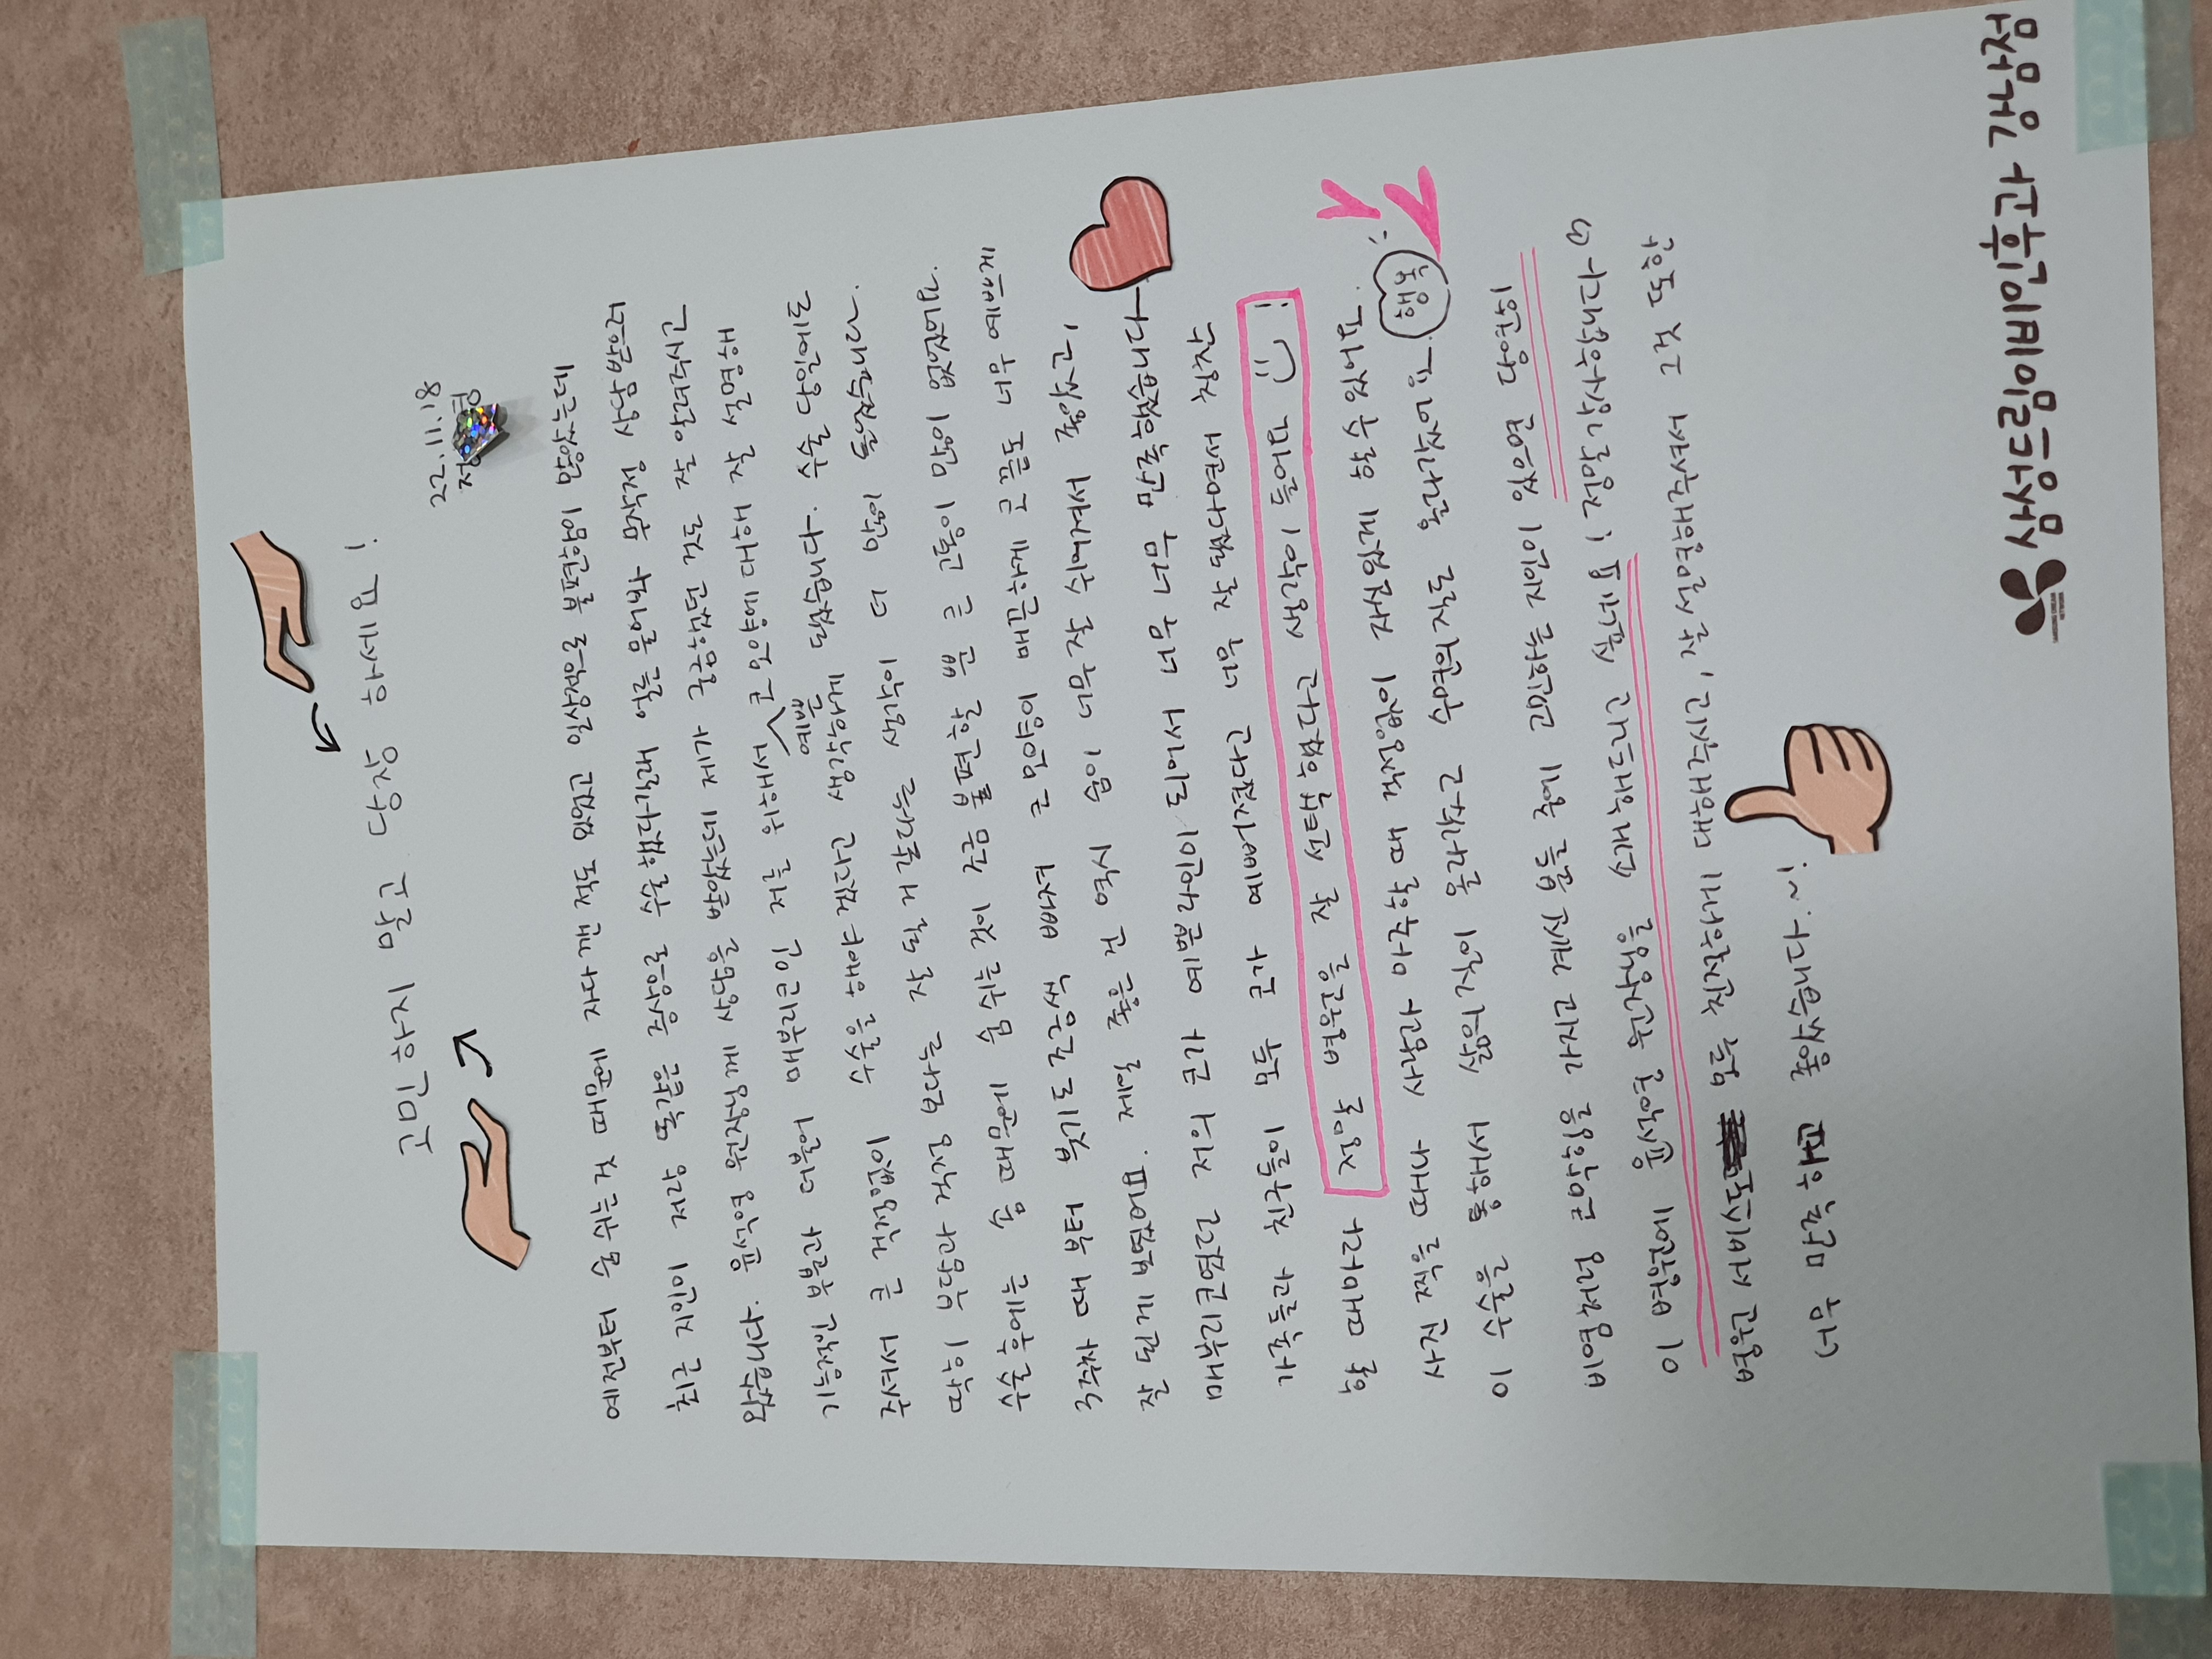 고민하지 말고 당장 하세요!
22.11.18
정 영
예전부터 숨 쉬는 것 때문에 자다 깬 적도 있었고 일상적으로 불편함이 많았는데
최근 지인이 저랑 똑같은 증상으로 수술했다길래 얼른 물어봐 무작정 상담받으러
왔습니다. 윤석영 원장님께 상담을 받았는데 제가 궁금했던 것도 잘 알려주시고
기능적인 부분과 더불어 매부리코인 저를 위해서 예쁜 코 모양에 대해 잘 설명해
주셔서 큰 걱정없이 수술을 해야겠다고 생각하게 됐습니다. 수술 당일에도
딱히 부담과 걱정 보다는 잘 될 거 같다는 생각이 더 많이 들었습니다.
수술 후에는 솜 때문에 숨 쉬는 것이 조금 불편할 뿐 큰 고통이 많이 없었어요.
3주차 때 부터 붓기도 조금씩 빠져 코 모양이 매끈하게 코 끝도 너무 예쁘게
잘 된게 보였어요. 제일 좋은 건 역시 숨이 너무 잘 쉬어져서 좋았고,
매부리코였던 저의 코가 예쁜라인이 되어서 너무 너무 만족했습니다
가족들과 친구들이 모두 코가 예뻐졌다고 너무 잘 됐다면서 칭찬
할 때마다 정말 병원을 잘 선택했다고 생각이 들어요 !
사진 찍을 때나 사람과 마주할 때 걱정없이 자신있게 할 수 있어요.
이 수술을 통해서 삶의 질이 올라갔고 수면의 질도 올라갔어요. 행복
비염처럼 코막힘을 가지고 계신 분들 중에 고민하는 지인이 있으면 당연히
이 병원에 윤석연 원장님을 소개해드리고 싶네요! 정말 감사합니다♡
병원 서비스도 모두 친절하게 대해주시고, 잘 설명해주셔서 그것 또한
너무 만족하고 좋았습니다.~!
SAMSUNG DREAM
NETWORK
삼성드림이비인후과 강남점